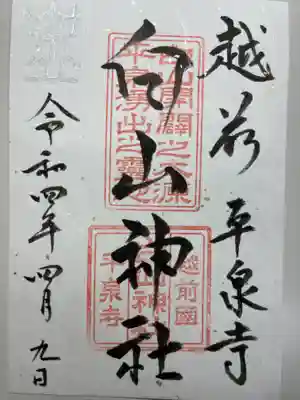 越前 平泉寺
白山神社
令和四年 四月 九日
白山開闢之天源
平泉湧出之靈地
越前國
白山神社
平泉寺